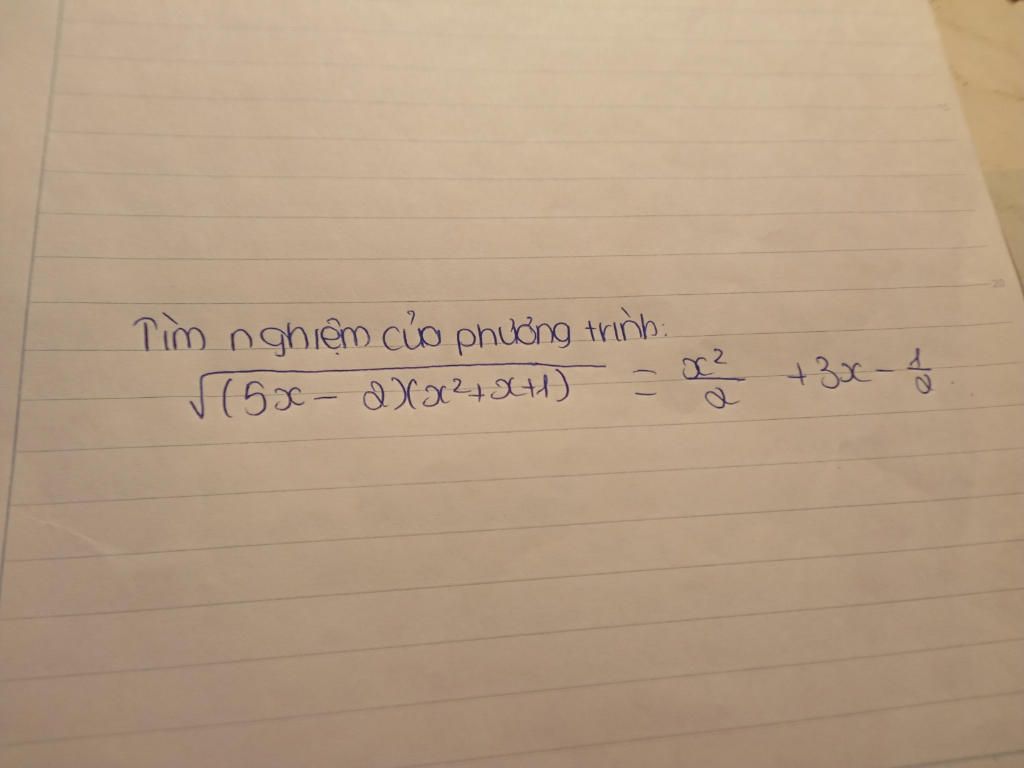 Tìm nghiệm của phương trình:
√(5x - 2)(x²+x+1) = x²/2 + 3x - 1/2